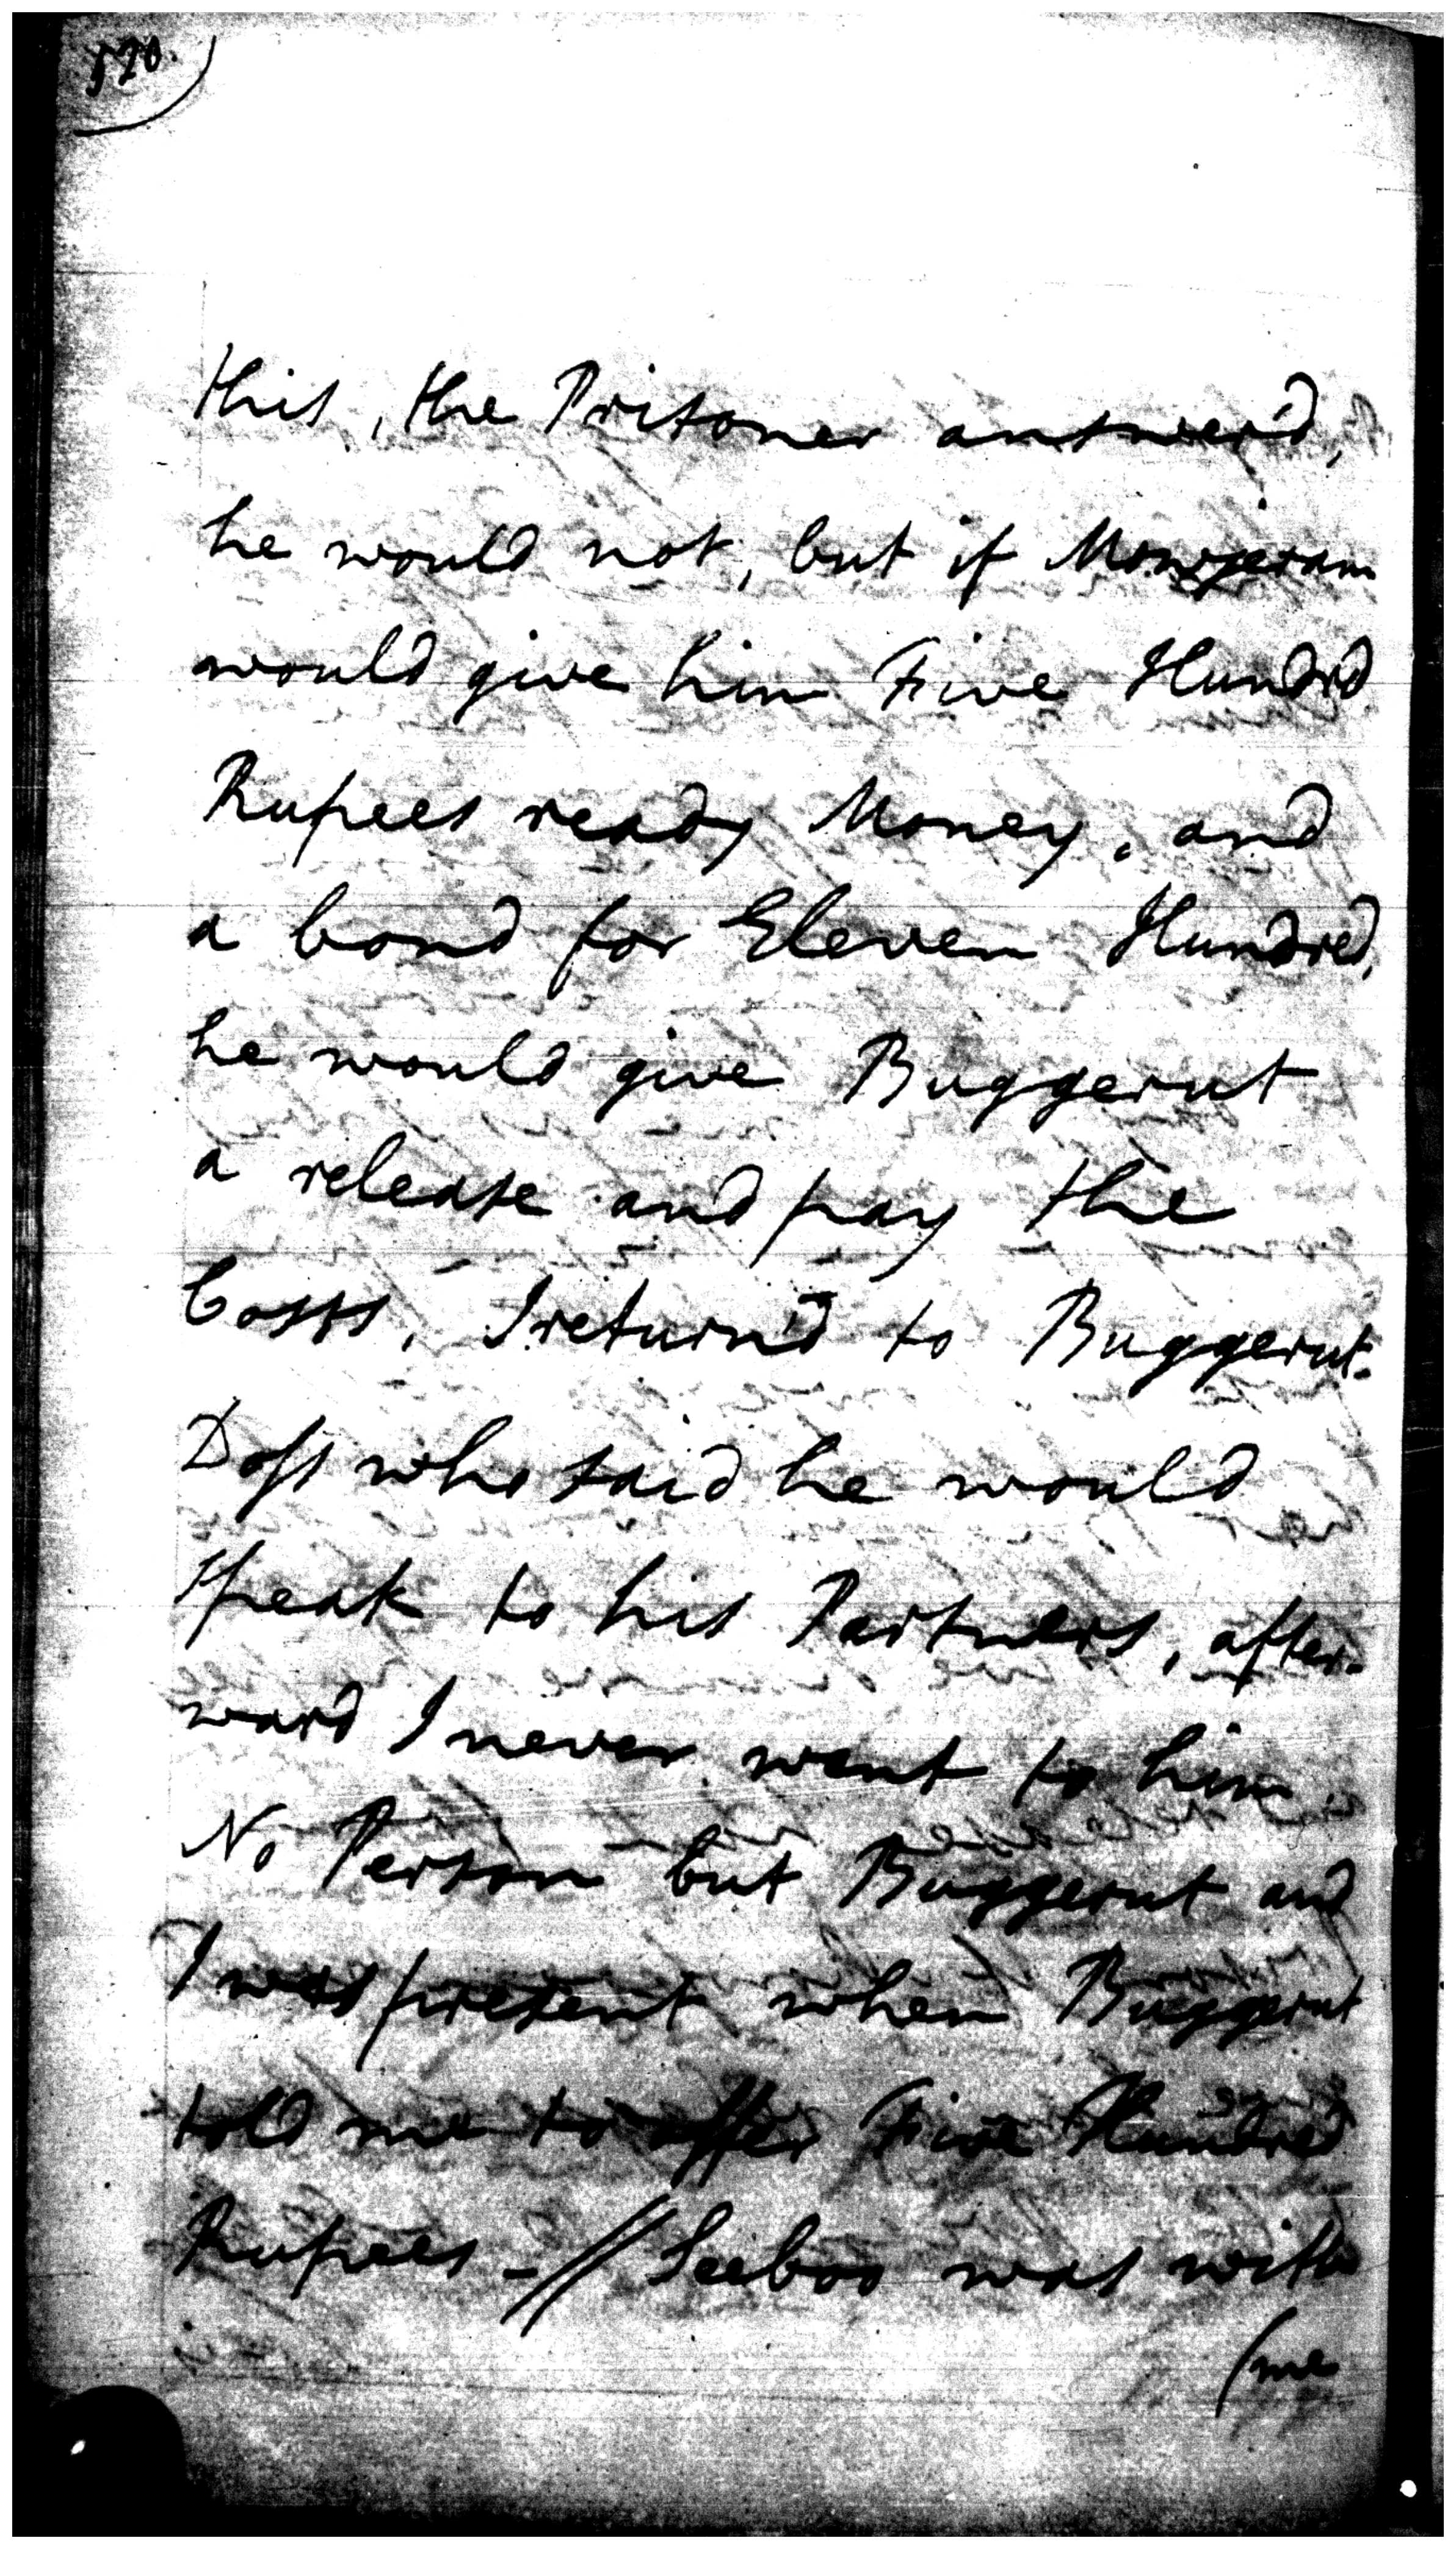 520.
this, the Prisoner answer'd,
he would not, but if Monjeram
would give him Five Hundrd
Rupees ready Money, and
a bond for Eleven Hundred,
he would give Buggerut
a release and pay the
Costs, I return'd to Buggerut-
Doss who said he would
speak to his Partners, after-
ward I never went to him
No Person but Buggerut and
I was present when Buggerut
told me to offer Five Hundred
Rupees -// Seeboo was with
(me